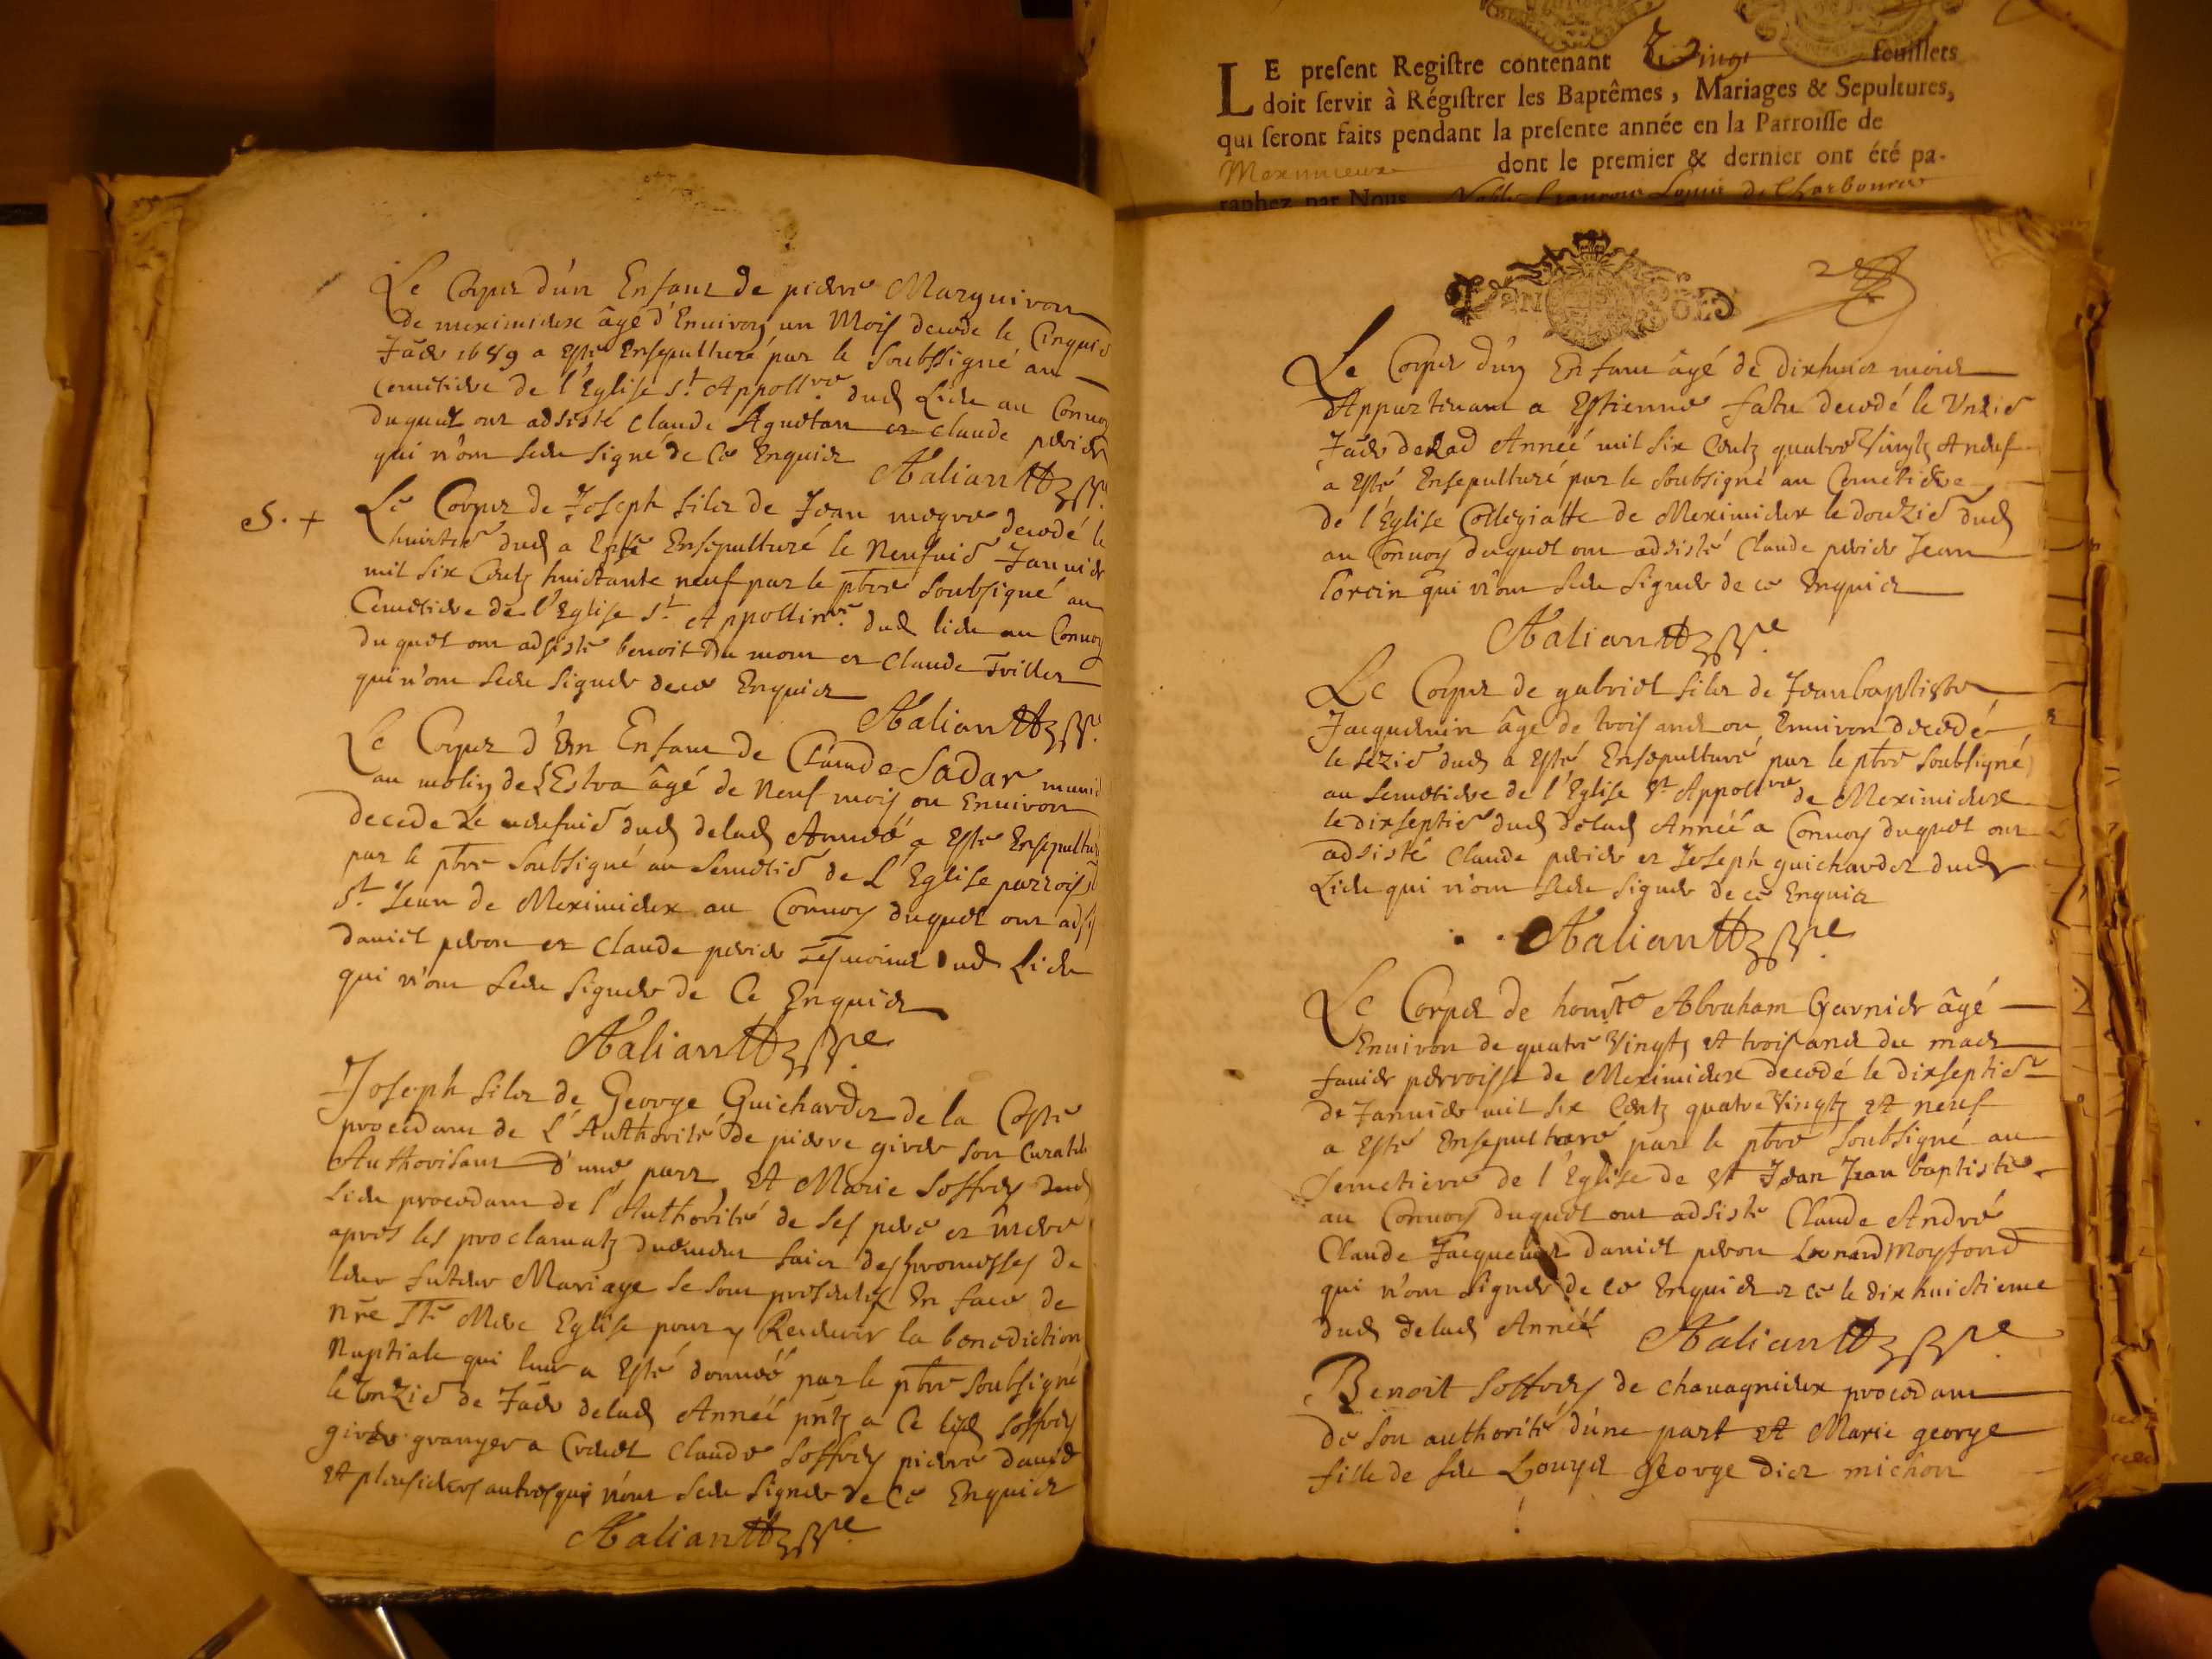 Le Corps d'un Enfant de pierre Marguiron
de meximieux âgé d'Enuiron un Mois decede le Cinquie
Jäer 1689 a Esté Ensepulturé par le Soubssigné au
Cemetiere de l'Eglise St Appollre dud Lieu au Conuoy
duquel ont adsisté Claude Agnetan et Claude perier
qui n'ont sceu signé de Ce Enquis
S. + Le Corps de Joseph fils de Jean megre decedé le
huictie dud a Esté Ensepulturé le Neufuie Januier
mil Six Centz huictante neuf par le pbre Soubsigné au
Cemetiere de l'Eglise St Appollinre dud lieu au Conuoy
duquel ont adsisté benoit Du mont et Claude
qui n'ont sceu signer de ce Enquis
Le Corps d'un Enfant de Claude Sadar
au molin de L'Estra âgé de Neuf mois ou Enuiron
decede le neufuie dud delad Année a Esté Ensepultu
par le pbre Soubsigné au Semetie de L'Eglise parrois
St Jean de Meximieux au Conuoy duquel ont ads
daniel peron et Claude perier Tesmoins dud Lieu
qui n'ont sceu signer de Ce Enquis
Joseph fils de George Guichardet de la Coste
procedant de L'Authorité de pierre giver son Curate
Authorisant d'une part Et Marie Soffrey dud
Lieu procedant de l'Authorité de ses pere et mere
apres les proclamatz duement faict des promesses de
leur futeur Mariage se sont presentez En face de
nre Ste Mere Eglise pour y Receuoir la benediction
Nuptiale qui leur a Esté donnée par le pbre soubsigné
le onzie de Jäer delad Année pntz a Ce Soffrey
granger a Claude Soffrey pierre Dauid
et plusieurs autres qui n'ont sceu signer de Ce Enquis
LE present Registre contenant Vingt feuillets
doit servir à Régistrer les Baptêmes, Mariages & Sepultures,
qui seront faits pendant la presente année en la Parroisse de
Meximieux dont le premier & dernier ont été pa-
raphez par Nous Noble françois Louis de Charbonne
Le Corps d'un Enfant âgé de dixhuict mois
Appartenant a Estienne decedé le Vnzie
Jäer delad Année mil six Centz quatre Vingtz et neuf
a Esté Ensepulturé par le Soubsigné au Cemetiere
de l'Eglise Collegiatte de Meximieux le douzie dud
au Conuoy duquel ont adsisté Claude perier Jean
qui n'ont sceu signer de ce Enquis
Le Corps de gabriel fils de Jean baptiste
Jacquemin âgé de trois ans ou Enuiron decedé
le sezie dud a Esté Ensepulturé par le pbre Soubsigné
au Semetiere de l'Eglise St Appollre de Meximieux
le dixseptie dud delad Année a Conuoy duquel ont
adsisté Claude perier et Joseph guichardet dud
Lieu qui n'ont sceu signer de ce Enquis
Le Corps de honste Abraham Garnier âgé
Enuiron de quatre Vingtz et trois ans du mas
fanier perroisse de Meximieux decedé le dixseptie
de Januier mil six Centz quatre Vingtz et neuf
a Esté Ensepulturé par le pbre Soubsigné au
Semetiere de l'Eglise de St Jean Jean baptiste
au Conuoy duquel ont adsisté Claude André
Claude daniel peron
qui n'ont signer de ce Enquis ce le dix huictieme
dud delad Année
Benoit Soffrey de chauagnieux procedant
de son authorité d'une part et Marie george
fille de feu Louys George dict michon